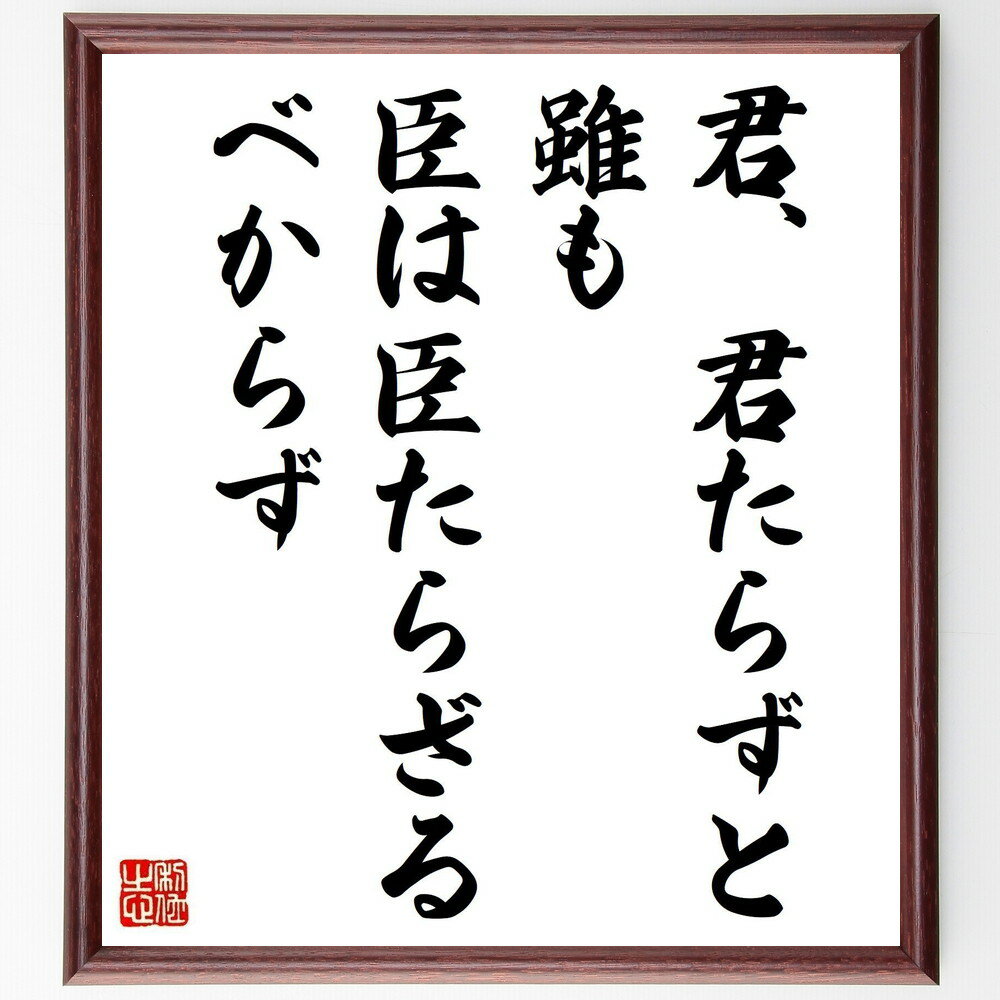 君、君たらずと
雖も
臣は臣たらざる
べからず